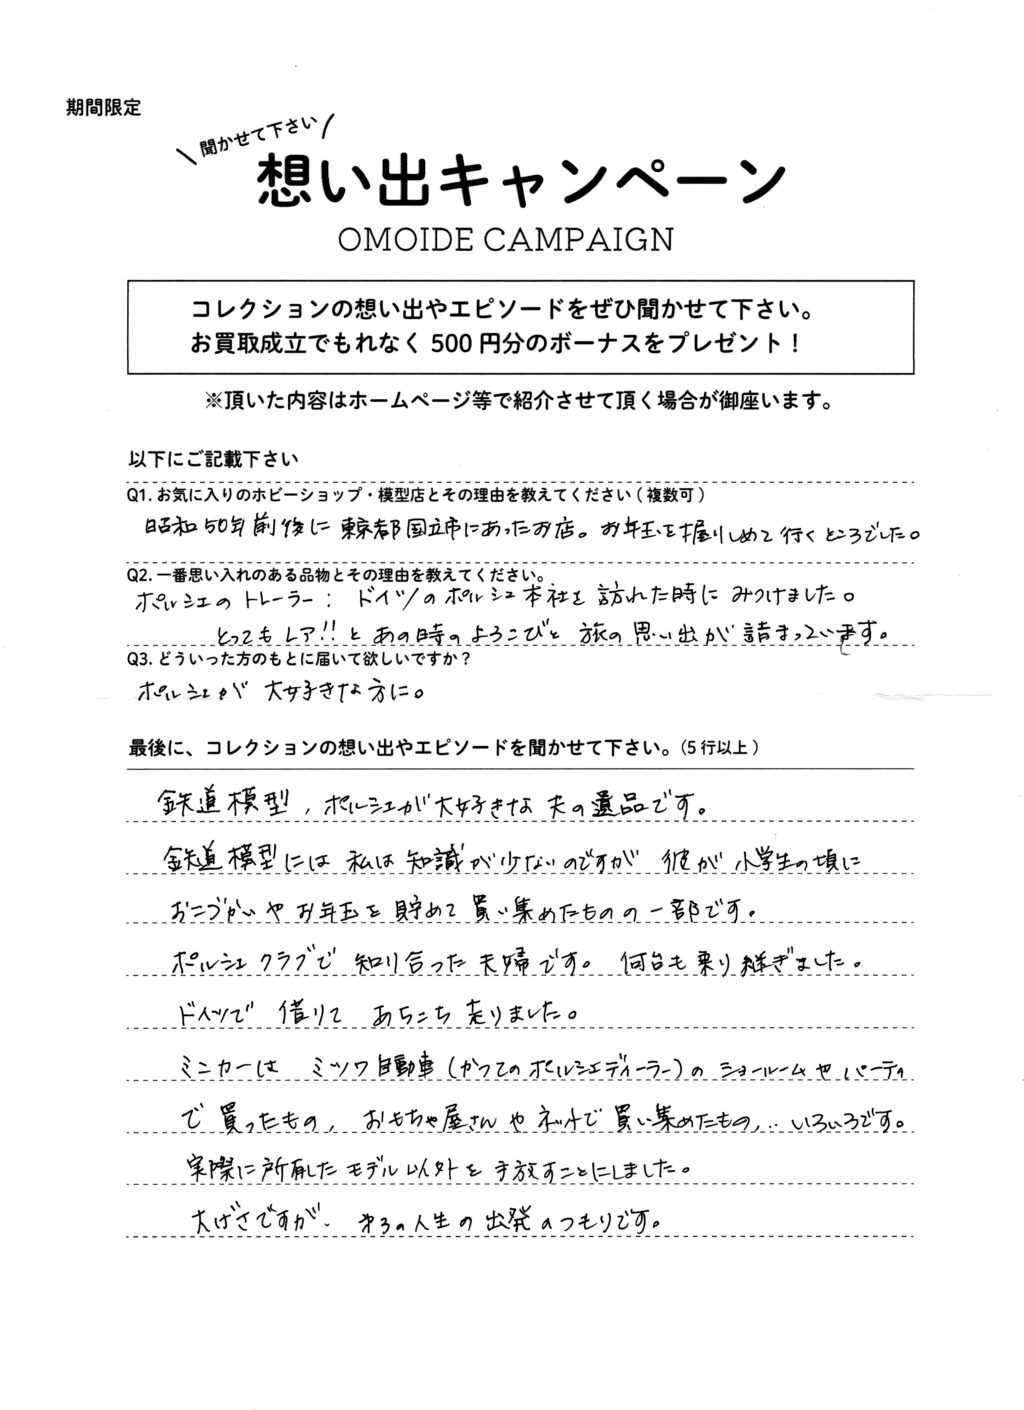 期間限定
聞かせて下さい
想い出キャンペーン
OMOIDE CAMPAIGN
コレクションの想い出やエピソードをぜひ聞かせて下さい。
お買取成立でもれなく 500 円分のボーナスをプレゼント！
※頂いた内容はホームページ等で紹介させて頂く場合が御座います。
以下にご記載下さい
Q1. お気に入りのホビーショップ・模型店とその理由を教えてください ( 複数可 )
昭和50年前後に 東京都国立市にあったお店。お年玉を握りしめて行くところでした。
Q2. 一番思い入れのある品物とその理由を教えてください。
ポルシェの トレーラー： ドイツのポルシェ本社を 訪れた時に みつけました。
とってもレア!!と あの時のよろこびと 旅の思い出が 詰まっています。
Q3. どういった方のもとに届いて欲しいですか？
ポルシェが 大好きな方に。
最後に、コレクションの想い出やエピソードを聞かせて下さい。(5 行以上 )
鉄道模型，ポルシェが大好きな 夫の遺品です。
鉄道模型には 私は知識が少ないのですが 彼が 小学生の頃に
おこづかいや お年玉を 貯めて 買い集めたものの一部です。
ポルシェクラブで 知り合った夫婦です。 何台も乗り継ぎました。
ドイツで 借りて あちこち 走りました。
ミニカーは ミツワ自動車（かつてのポルシェディーラー）の ショールームや パーティ
で 買ったもの， おもちゃ屋さんや ネットで 買い集めたもの，… いろいろです。
実際に所有したモデル以外を手放すことにしました。
大げさですが、 第3の人生の出発のつもりです。